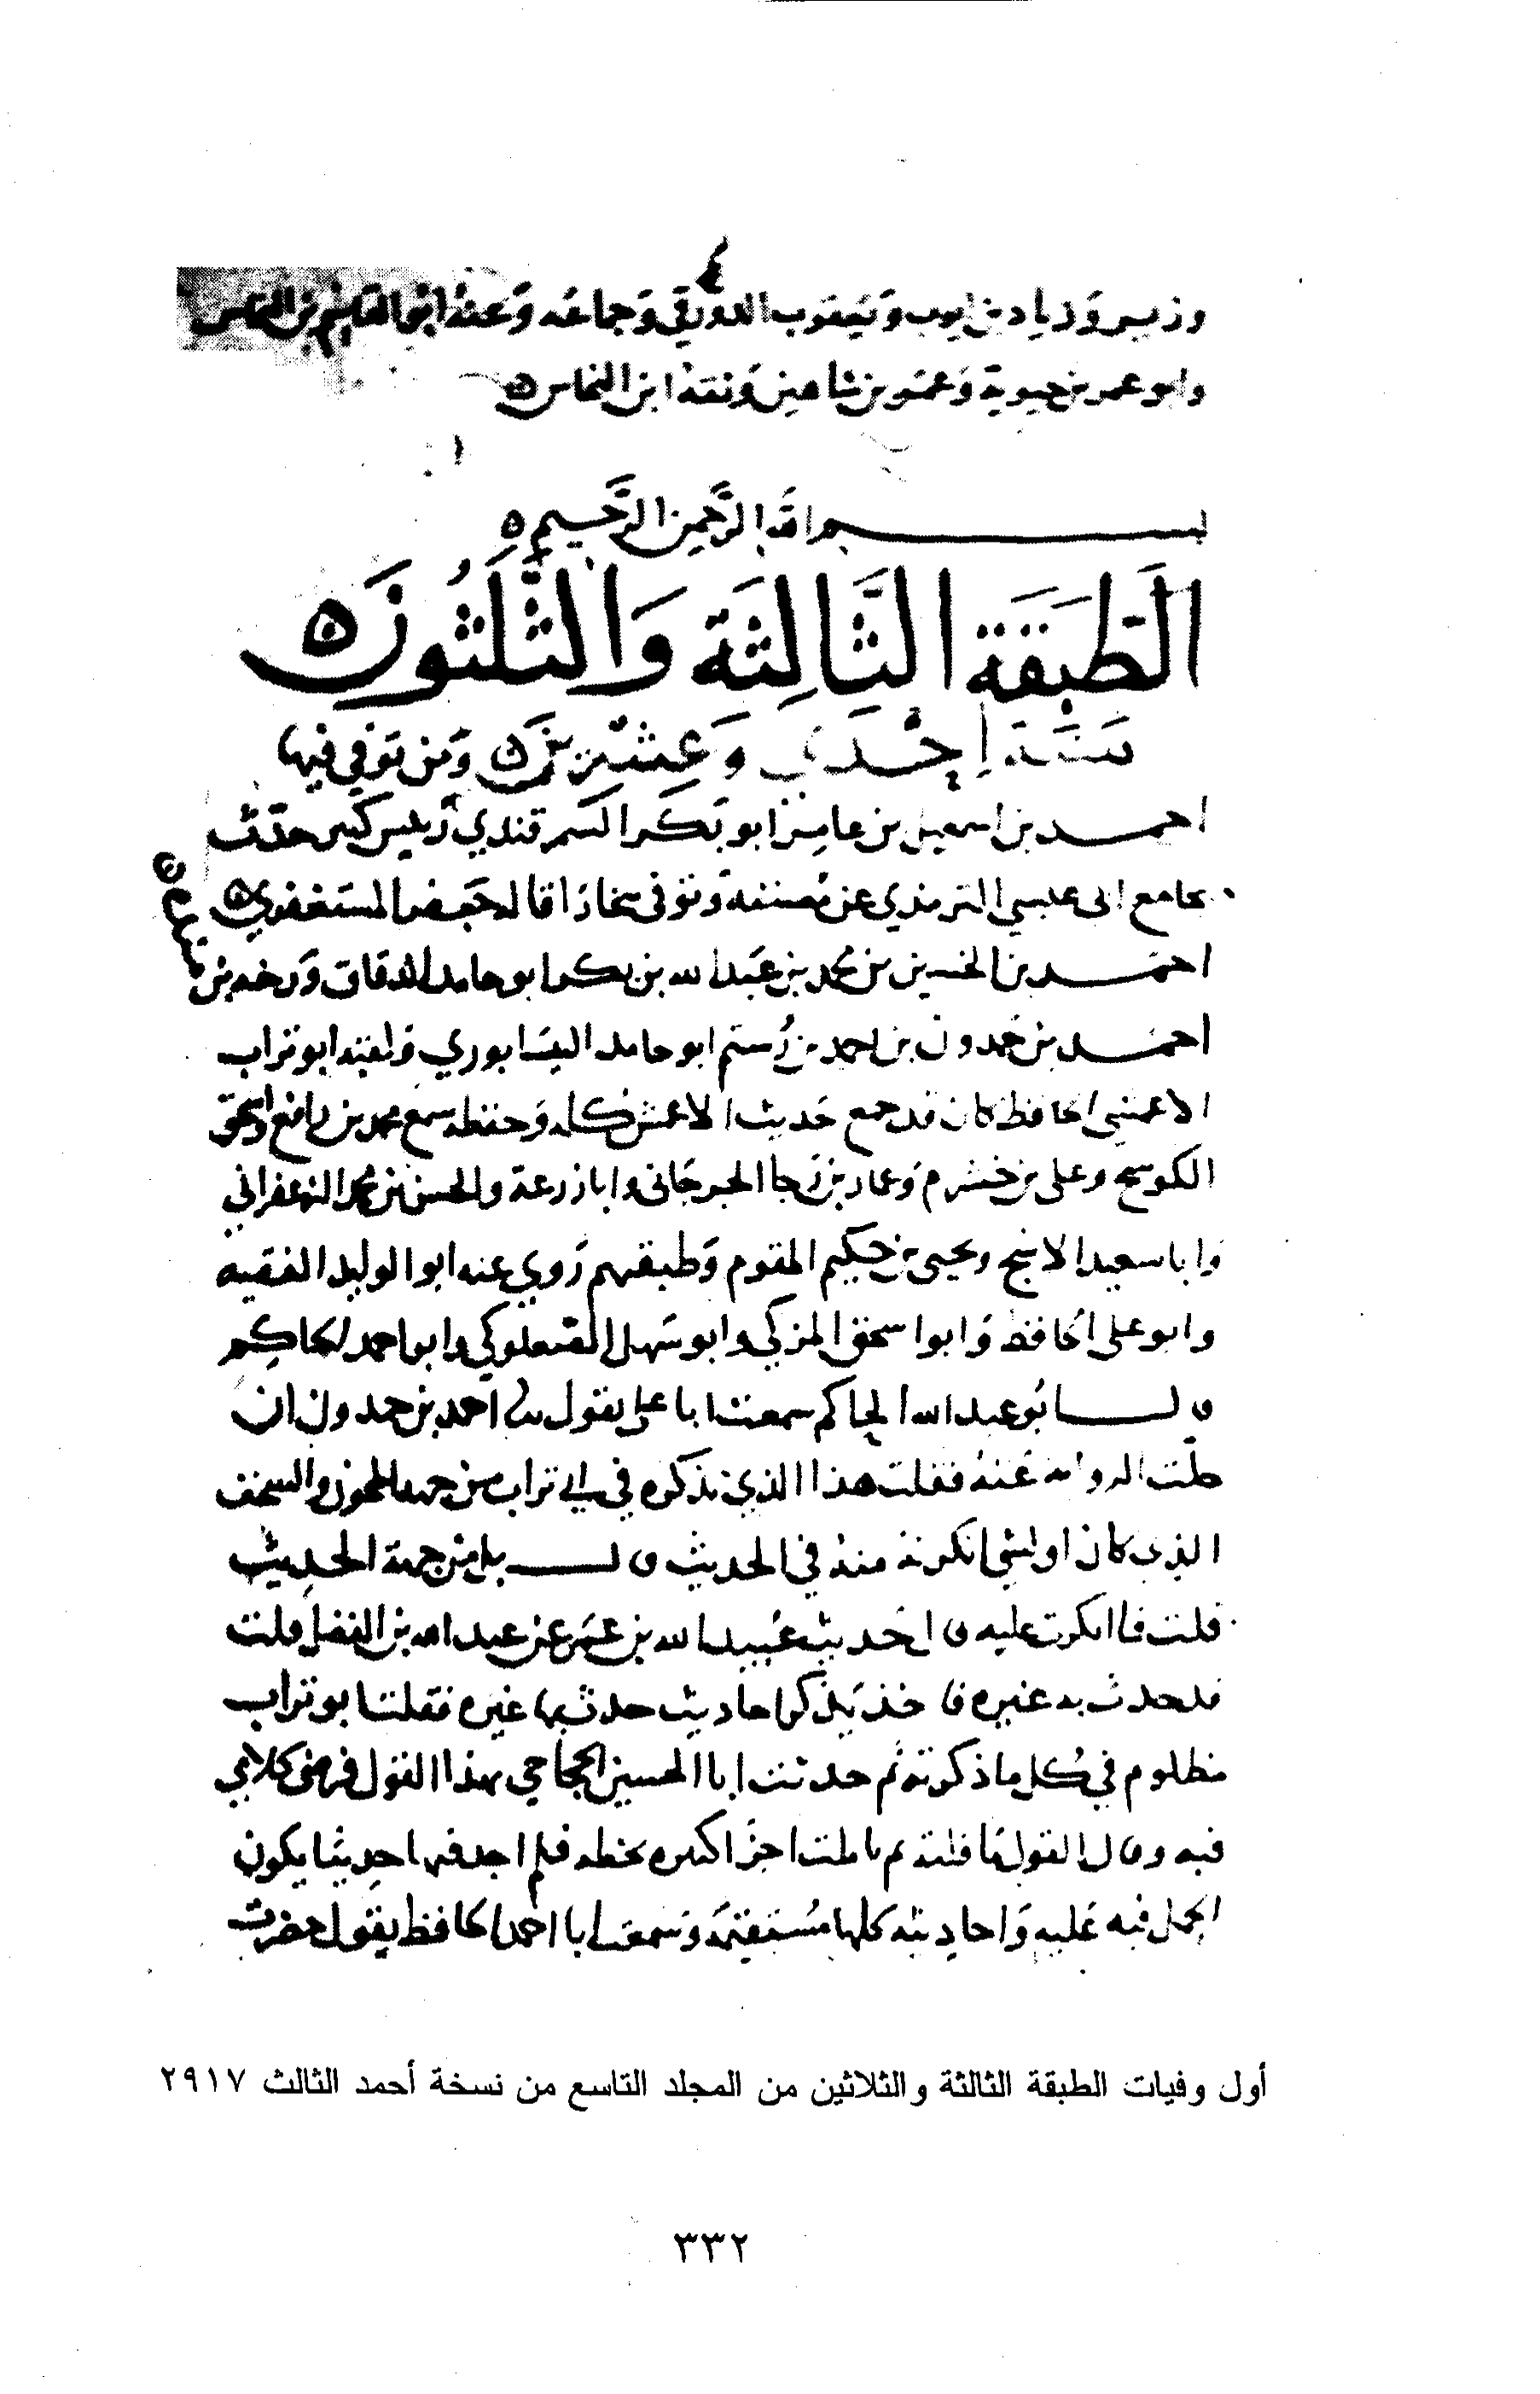 وزياد بن ايوب ويعقوب الدورقي وجماعه وعنه ابو القاسم بن النحاس
وابو عمر بن حيوية وعمر بن شاهين وثقه ابن النحاس
بسم الله الرحمن الرحيم
الطَّبَقَة الثَّالِثَة وَالثَّلثُونَ
سنة احدي وعشرين ومن توفي فيها
احمد بن اسمعيل بن عامر ابو بكر السمرقندي رئيس كبير حدث
بجامع ابى عيسي الترمذي عن مصنفه وتوفى ببخارا قاله جعفر المستغفري
احمد بن الحسين بن محمد بن عبد الله بن بكر ابو حامد الدقاق ورخه بن
احمد بن حمدون بن احمد بن رستم ابو حامد النيسابوري ولقبه ابو تراب
الاعمشي الحافظ كان قد جمع حديث الاعمش كله وحفظه سمع محمد بن رافع واسحق
الكوسج وعلى بن خشرم وعمار بن رجا الجرجانى وابا زرعة والحسن بن محمد الزعفراني
وابا سعيد الاشج ويحيى بن حكيم المقوم وطبقتهم روي عنه ابو الوليد الفقيه
وابو على الحافظ وابو اسحق المزكي وابو سهل الصعلوكي وابو احمد الحاكم
قال ابو عبد الله الحاكم سمعت ابا على يقول ثنا احمد بن حمدون ان
حلت الروايه عنه فقلت هذا الذي تذكره في ابي تراب من جهة المجون والسخف
الذى كان او لشي انكرته منه في الحديث قال بل من جهة الحديث
قلت فما انكرت عليه قال حديث عبيد الله بن عمر عن عبد الله بن الفضل قلت
قد حدث به غيره فاخذ يذكر احاديث حدث بها غيره فقلت ابو تراب
مظلوم في كل ما ذكرته ثم حدثت ابا الحسين الحجاجي بهذا القول فرضى كلامي
فيه وقال القول ما قلته ثم تاملت اجزا كثيره بخطه فلم اجد فيها حديثا يكون
الحمل فيه عليه واحاديثه كلها مستقيمة وسمعت ابا احمد الحافظ يقول حضرت
أول وفيات الطبقة الثالثة والثلاثين من المجلد التاسع من نسخة أحمد الثالث ٢٩١٧
٣٣٢